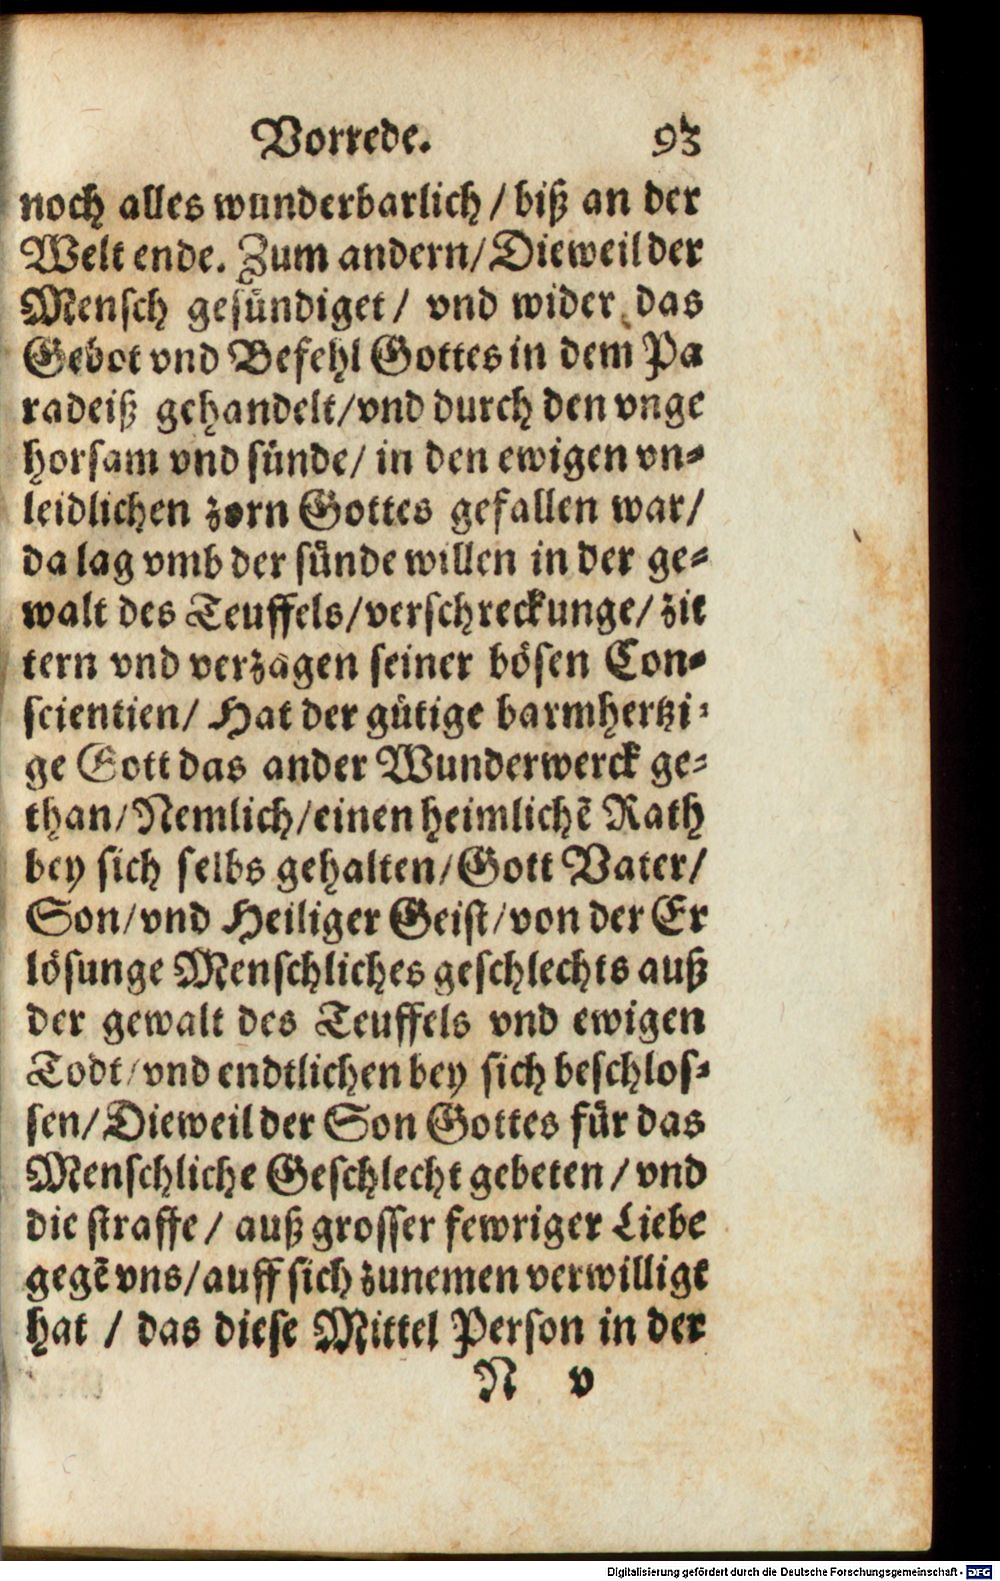 Vorrede. 93
noch alles wunderbarlich / biß an der
Welt ende. Zum andern / Dieweil der
Mensch gesündiget / vnd wider das
Gebot vnd Befehl Gottes in dem Pa
radeiß gehandelt / vnd durch den vnge
horsam vnd sünde / in den ewigen vn-
leidlichen zorn Gottes gefallen war /
da lag vmb der sünde willen in der ge-
walt des Teuffels / verschreckunge / zit
tern vnd verzagen seiner bösen Con-
scientien / Hat der gütige barmhertzi-
ge Gott das ander Wunderwerck ge-
than / Nemlich / einen heimlichē Rath
bey sich selbs gehalten / Gott Vater /
Son / vnd Heiliger Geist / von der Er
lösunge Menschliches geschlechts auß
der gewalt des Teuffels vnd ewigen
Todt / vnd endtlichen bey sich beschlos-
sen / Dieweil der Son Gottes für das
Menschliche Geschlecht gebeten / vnd
die straffe / auß grosser fewriger Liebe
gegē vns / auff sich zunemen verwilligt
hat / das diese Mittel Person in der
N v
Digitalisierung gefördert durch die Deutsche Forschungsgemeinschaft - DFG